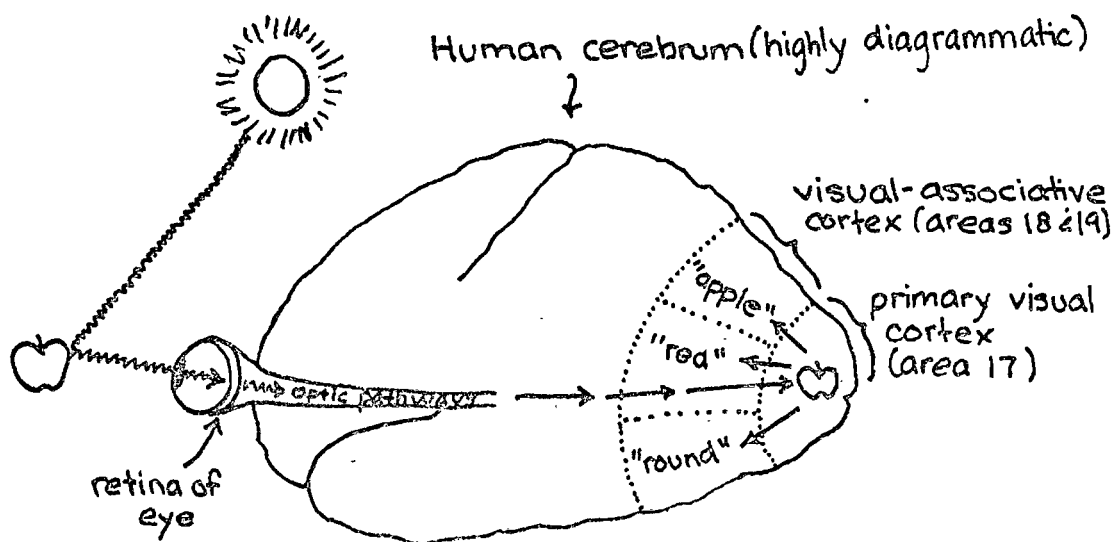 Human cerebrum (highly diagrammatic)
visual-associative
cortex (areas 18 & 19)
"apple"
primary visual
cortex
(area 17)
"red"
optic pathways
"round"
retina of
eye